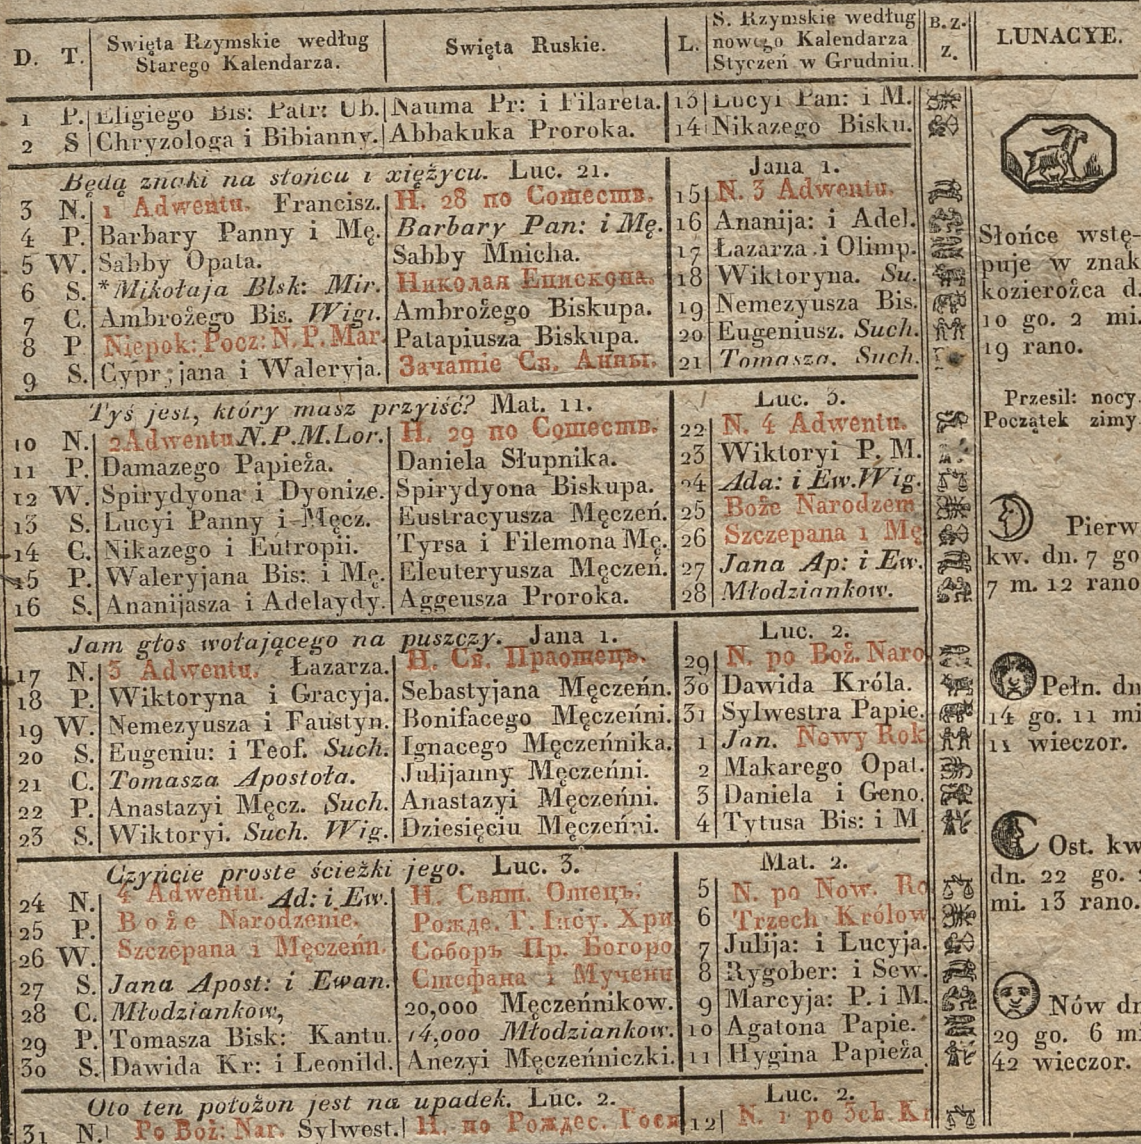 D. T. Swięta Rzymskie według Starego Kalendarza. Swięta Ruskie. L. S. Rzymskie według nowego Kalendarza Styczeń w Grudniu. B. z. z. LUNACYE.
1 P. Eligiego Bis: Patr: Ub. Nauma Pr: i Filareta. 13 Lucyi Pan: i M.
2 S Chryzologa i Bibianny. Abbakuka Proroka. 14 Nikazego Bisku.
Będą znaki na słońcu i xiężycu. Luc. 21. Jana 1.
3 N. 1 Adwentu. Francisz. Н. 28 по Сошеств. 15 N. 3 Adwentu.
4 P. Barbary Panny i Mę. Barbary Pan: i Mę. 16 Ananija: i Adel.
5 W. Sabby Opata. Sabby Mnicha. 17 Łazarza i Olimp.
6 S. *Mikołaja Bisk: Mir. Николая Епископа. 18 Wiktoryna. Su.
7 C. Ambrożego Bis. Wigi. Ambrożego Biskupa. 19 Nemezyusza Bis.
8 P. Niepok: Pocz: N. P. Mar. Patapiusza Biskupa. 20 Eugeniusz. Such.
9 S. Cypryjana i Waleryja. Зачатіе Св. Анны. 21 Tomasza. Such.
Tyś jest, który masz przyiść? Mat. 11. Luc. 3.
10 N. 2 Adwentu. N.P.M.Lor. Н. 29 по Сошеств. 22 N. 4 Adwentu.
11 P. Damazego Papieża. Daniela Słupnika. 23 Wiktoryi P. M.
12 W. Spirydyona i Dyonize. Spirydyona Biskupa. 24 Ada: i Ew. Wig.
13 S. Lucyi Panny i Męcz. Eustracyusza Męczeń. 25 Boże Narodzem
14 C. Nikazego i Eutropii. Tyrsa i Filemona Mę. 26 Szczepana i Mę
15 P. Waleryjana Bis: i Mę. Eleuteryusza Męczeń. 27 Jana Ap: i Ew.
16 S. Ananijasza i Adelaydy. Aggeusza Proroka. 28 Młodziankow.
Jam głos wołającego na puszczy. Jana 1. Luc. 2.
17 N. 3 Adwentu. Łazarza. Н. Св. Праотецъ. 29 N. po Boż. Naro
18 P. Wiktoryna i Gracyja. Sebastyjana Męczeńn. 30 Dawida Króla.
19 W. Nemezyusza i Faustyn. Bonifacego Męczeńni. 31 Sylwestra Papie.
20 S. Eugeniu: i Teof. Such. Ignacego Męczeńnika. 1 Jan. Nowy Rok
21 C. Tomasza Apostoła. Julijanny Męczeńni. 2 Makarego Opat.
22 P. Anastazyi Męcz. Such. Anastazyi Męczeńni. 3 Daniela i Geno.
23 S. Wiktoryi. Such. Wig. Dziesięciu Męczeńni. 4 Tytusa Bis: i M
Czyńcie proste ścieżki jego. Luc. 3. Mat. 2.
24 N. 4 Adwentu. Ad: i Ew. Н. Свят. Отецъ. 5 N. po Now. Ro
25 P. Boże Narodzenie. Рожде. Г. Іису. Хри 6 Trzech Królow
26 W. Szczepana i Męczeńn. Соборъ Пр. Богоро 7 Julija: i Lucyja.
27 S. Jana Apost: i Ewan. Стефана i Мучени 8 Rygober: i Sew.
28 C. Młodziankow, 20,000 Męczeńnikow. 9 Marcyja: P. i M.
29 P. Tomasza Bisk: Kantu. 14,000 Młodziankow. 10 Agatona Papie.
30 S. Dawida Kr: i Leonild. Anezyi Męczeńniczki. 11 Hygina Papieża
Oto ten położon jest na upadek. Luc. 2. Luc. 2.
31 N. Po Boż: Nar. Sylwest. Н. по Рождес. Госп 12 N. 1 po 3ch Kr
Słońce wstę-
puje w znak
kozierożca d.
10 go. 2 mi.
19 rano.
Przesil: nocy.
Początek zimy.
Pierw
kw. dn. 7 go
7 m. 12 rano
Pełn. dn
14 go. 11 mi
11 wieczor.
Ost. kw
dn. 22 go.
mi. 13 rano.
Nów dn
29 go. 6 m
42 wieczor.